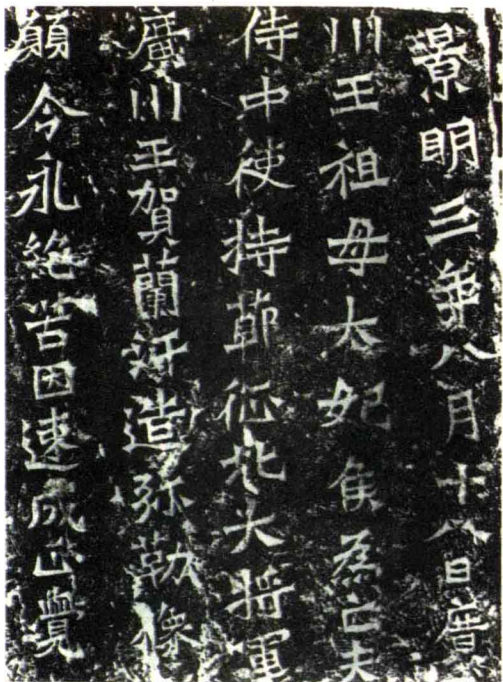 景明三年八月十八日廣
川王祖母太妃侯為亡夫
侍中使持節征北大將軍
廣川王賀蘭汗造彌勒像
願令永絕苦因速成正覺